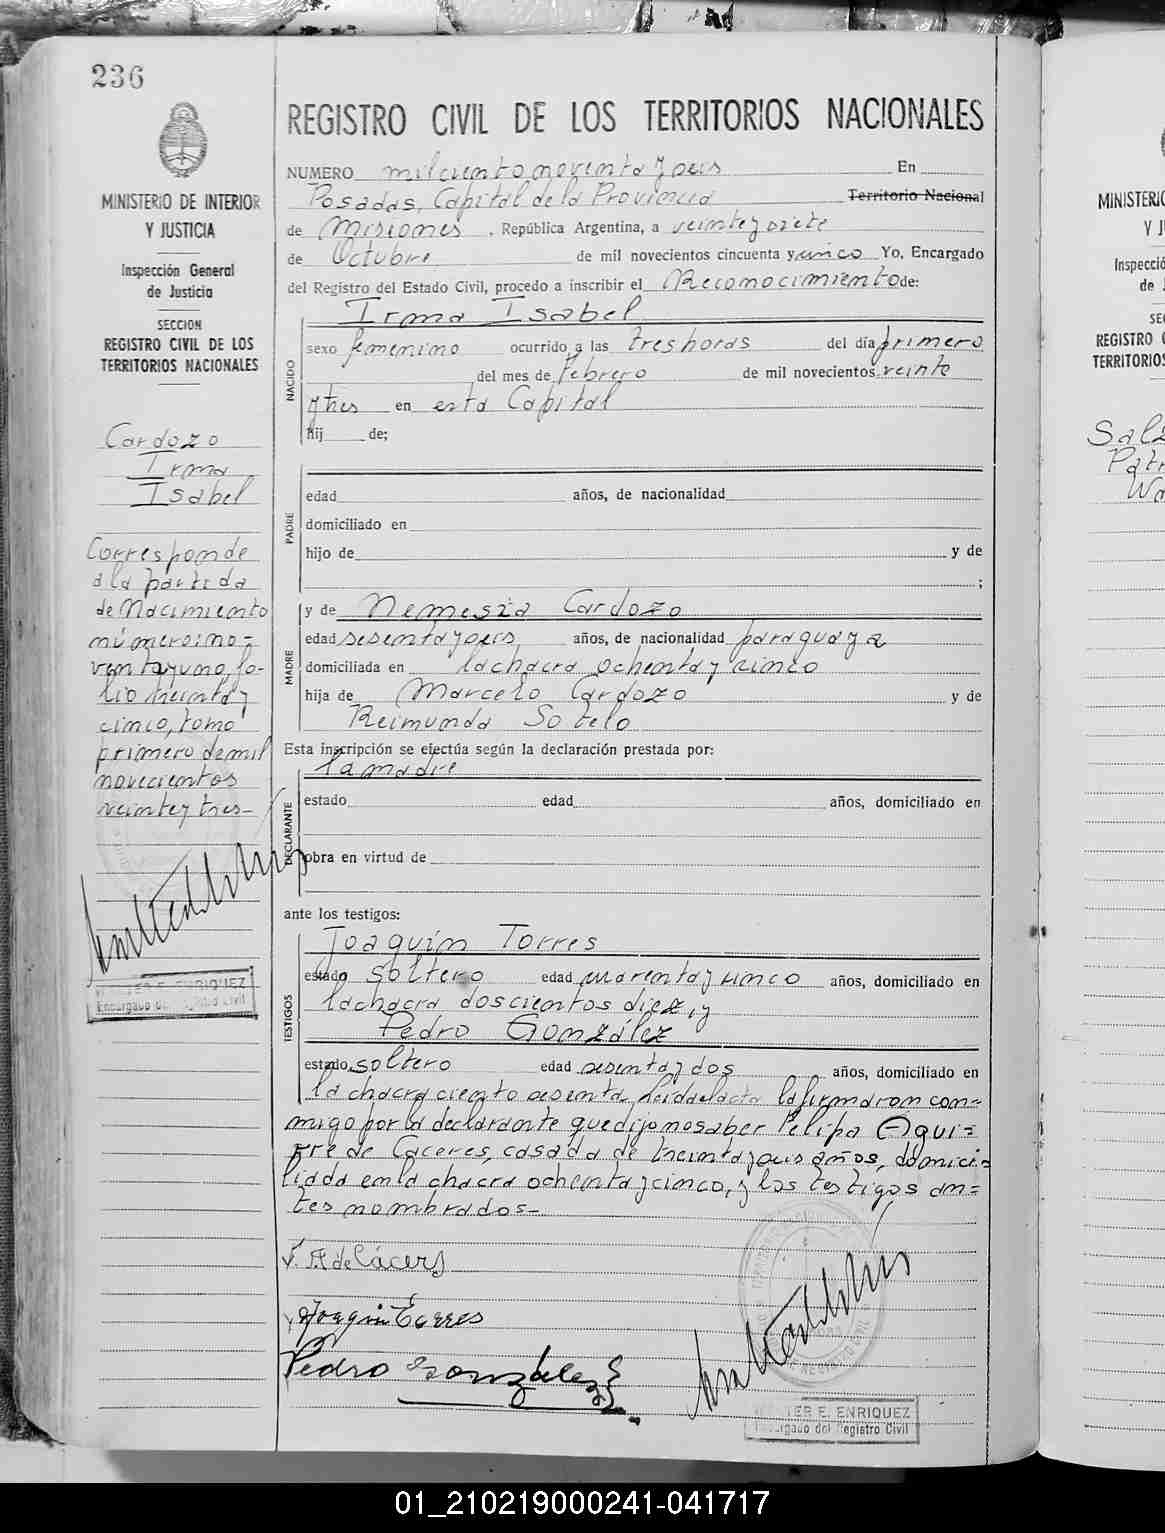 236
MINISTERIO DE INTERIOR
Y JUSTICIA
Inspección General
de Justicia
SECCION
REGISTRO CIVIL DE LOS
TERRITORIOS NACIONALES
Cardozo
Irma
Isabel
Corresponde
a la partida
de Nacimiento
número: no=
venta y uno, fo-
lio treinta y
cinco, tomo
primero de mil
novecientos
veinte y tres-
REGISTRO CIVIL DE LOS TERRITORIOS NACIONALES
NUMERO mil ciento noventa y seis En
Posadas, Capital de la Provincia Territorio Nacional
de Misiones, República Argentina, a veinte y siete
de Octubre de mil novecientos cincuenta y cinco Yo, Encargado
del Registro del Estado Civil, procedo a inscribir el Reconocimiento de:
Irma Isabel
NACIDO
sexo femenino ocurrido a las tres horas del día primero
del mes de Febrero de mil novecientos veinte
y tres en esta Capital
hij de;
PADRE
edad años, de nacionalidad
domiciliado en
hijo de y de
;
MADRE
y de Nemesia Cardozo
edad sesenta y seis años, de nacionalidad paraguaya
domiciliada en la chacra ochenta y cinco
hija de Marcelo Cardozo y de
Reimunda Sotelo
Esta inscripción se efectúa según la declaración prestada por:
la madre
DECLARANTE
estado edad años, domiciliado en
obra en virtud de
ante los testigos:
TESTIGOS
Joaquín Torres
estado soltero edad cuarenta y cinco años, domiciliado en
la chacra doscientos diez, y
Pedro González
estado soltero edad sesenta y dos años, domiciliado en
la chacra ciento sesenta, leida el acta la firmaron con=
migo por la declarante que dijo no saber Felipa Agui=
rre de Caceres, casada de treinta y seis años, domici=
liada en la chacra ochenta y cinco, y los testigos an=
tes nombrados-
F. A de Cácers
Joaquin Torres
Pedro Gonzalez
WALTER E. ENRIQUEZ
Encargado del Registro Civil
WALTER E. ENRIQUEZ
Encargado del Registro Civil
MINISTERIO
Y J
Inspecció
de J
SE
REGISTRO C
TERRITORIOS
01_210219000241-041717